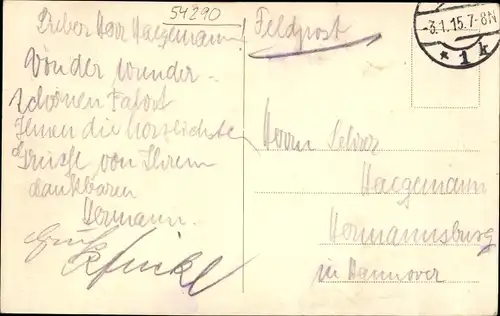 54290
Feldpost
3.1.15.7-8N
* 1 k
Lieber Herr Haegemann!
Von der wunder-
schönen Fahrt
Ihnen die herzlichste
Grüsse von Ihrem
dankbaren
Hermann.
Gruß
Herrn Lehrer
Haegemann
Hermannsburg
in Hannover